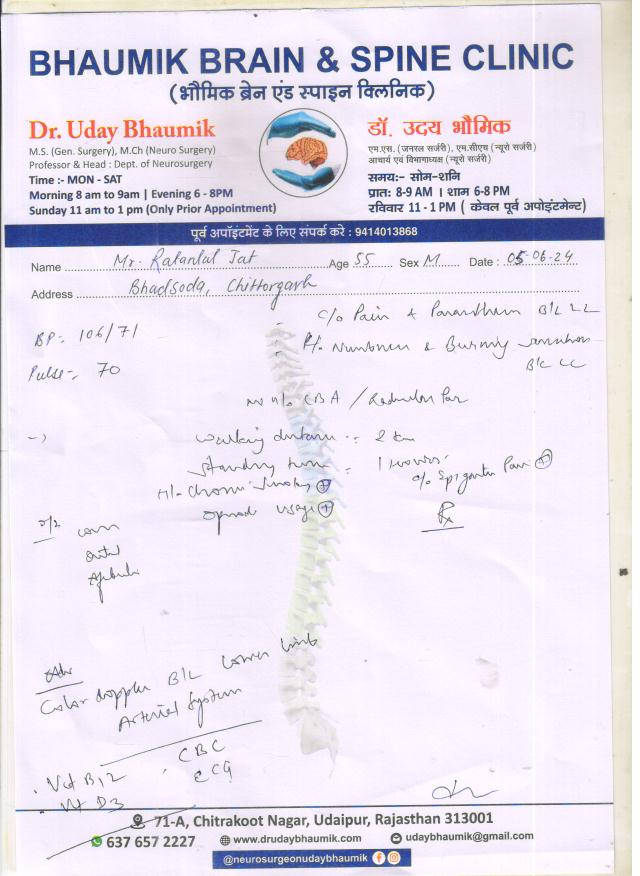 BHAUMIK BRAIN & SPINE CLINIC
(भौमिक ब्रेन एंड स्पाइन क्लिनिक)
Dr. Uday Bhaumik
M.S. (Gen. Surgery), M.Ch (Neuro Surgery)
Professor & Head : Dept. of Neurosurgery
Time :- MON - SAT
Morning 8 am to 9am | Evening 6 - 8PM
Sunday 11 am to 1 pm (Only Prior Appointment)
डॉ. उदय भौमिक
एम.एस. (जनरल सर्जरी), एम.सीएच (न्यूरो सर्जरी)
आचार्य एवं विभागाध्यक्ष (न्यूरो सर्जरी)
समय:- सोम-शनि
प्रात: 8-9 AM । शाम 6-8 PM
रविवार 11 - 1 PM ( केवल पूर्व अपोइंटमेन्ट)
पूर्व अपॉइंटमेंट के लिए संपर्क करे : 9414013868
Name Mr. Ratanlal Jat Age 55 Sex M Date : 05-06-24
Address Bhadsoda, Chittorgarh
BP:- 106/71
Pulse:- 70
c/o Pain & B/L LL
Numbness & Burning
B/L LL
CBA /
walking distance :- 2 km
standing time :- 1 hour
c/o Epigastric Pain (+)
H/o Chronic Smoking (+)
Opioid usage (+)
Rx
Adv
Color doppler B/L Lower limb
Arterial System
CBC
ECG
Vit B12
Vit D3
71-A, Chitrakoot Nagar, Udaipur, Rajasthan 313001
637 657 2227 www.drudaybhaumik.com udaybhaumik@gmail.com
@neurosurgeonudaybhaumik